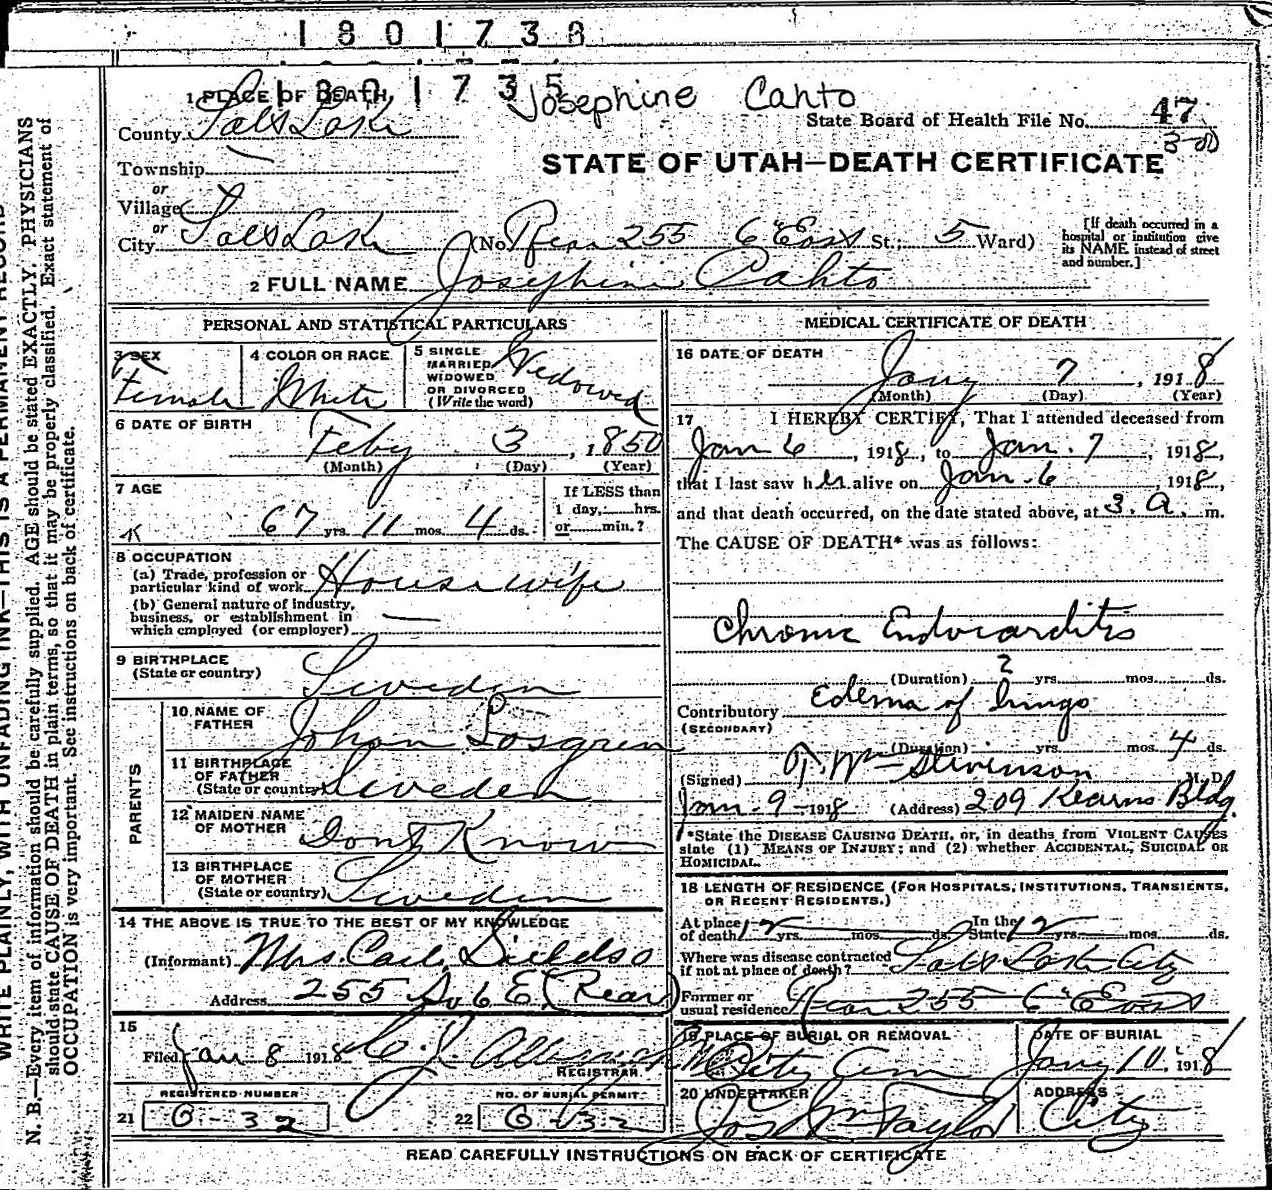 1801738
1801735
Josephine Cahto
1 PLACE OF DEATH
County Salt Lake
State Board of Health File No. 47
Township
STATE OF UTAH—DEATH CERTIFICATE
or
Village
or
City Salt Lake (No. Rear 255 6" East St.; 5 Ward)
[If death occurred in a
hospital or institution give
its NAME instead of street
and number.]
2 FULL NAME Josephine Cahto
PERSONAL AND STATISTICAL PARTICULARS
3 SEX
Female
4 COLOR OR RACE
White
5 SINGLE
MARRIED
WIDOWED
OR DIVORCED
(Write the word)
Wedowed
6 DATE OF BIRTH
Feby 3, 1850
(Month) (Day) (Year)
7 AGE
67 yrs. 11 mos. 4 ds.
If LESS than
1 day, hrs.
or min.?
8 OCCUPATION
(a) Trade, profession or
particular kind of work Housewife
(b) General nature of industry,
business, or establishment in
which employed (or employer) —
9 BIRTHPLACE
(State or country) Sweden
PARENTS
10 NAME OF
FATHER Johan Losgren
11 BIRTHPLACE
OF FATHER
(State or country) Sweden
12 MAIDEN NAME
OF MOTHER Dont Know
13 BIRTHPLACE
OF MOTHER
(State or country) Sweden
14 THE ABOVE IS TRUE TO THE BEST OF MY KNOWLEDGE
(Informant) Mrs. Carl
Address 255 So 6 E (Rear)
15
Filed Jan 8 1918
REGISTRAR
REGISTERED NUMBER
21 G-32
NO. OF BURIAL PERMIT
22 G-32
MEDICAL CERTIFICATE OF DEATH
16 DATE OF DEATH
Jany 7, 1918
(Month) (Day) (Year)
17 I HEREBY CERTIFY, That I attended deceased from
Jan 6, 1918, to Jan. 7, 1918,
that I last saw her alive on Jan. 6, 1918,
and that death occurred, on the date stated above, at 3. a. m.
The CAUSE OF DEATH* was as follows:
Chronic Endocarditis
(Duration) 2 yrs. mos. ds.
Contributory Edema of lungs
(SECONDARY)
(Duration) yrs. mos. 4 ds.
(Signed) T. Wm Stevenson M. D.
Jan. 9 - 1918 (Address) 209 Kearns Bldg.
*State the DISEASE CAUSING DEATH, or, in deaths from VIOLENT CAUSES
state (1) MEANS OF INJURY; and (2) whether ACCIDENTAL, SUICIDAL OR
HOMICIDAL.
18 LENGTH OF RESIDENCE (FOR HOSPITALS, INSTITUTIONS, TRANSIENTS,
OR RECENT RESIDENTS.)
At place In the
of death 12 yrs. mos. ds. State 12 yrs. mos. ds.
Where was disease contracted
if not at place of death? Salt Lake City
Former or
usual residence Rear 255 6" East
19 PLACE OF BURIAL OR REMOVAL
City Cem
DATE OF BURIAL
Jany 10, 1918
20 UNDERTAKER
Jos Wm Taylor
ADDRESS
City
READ CAREFULLY INSTRUCTIONS ON BACK OF CERTIFICATE
WRITE PLAINLY, WITH UNFADING INK—THIS IS A PERMANENT RECORD
N. B.—Every item of information should be carefully supplied. AGE should be stated EXACTLY. PHYSICIANS
should state CAUSE OF DEATH in plain terms, so that it may be properly classified. Exact statement of
OCCUPATION is very important. See instructions on back of certificate.